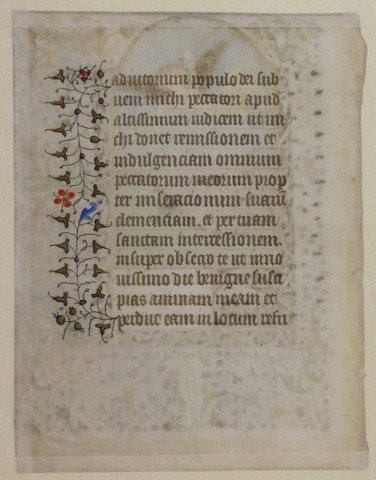 adiutorium populo dei sub
ueni michi peccatori apud
altissimum iudicem ut mi
chi donet remissionem et
indulgenciam omnium
peccatorum meorum prop
ter miseracionum suarū
clemenciam. et per tuam
sanctam intercessionem.
insuper obsecro te ut in no
uissimo die benigne susci
pias animam meam et
perduc eam in locum refri